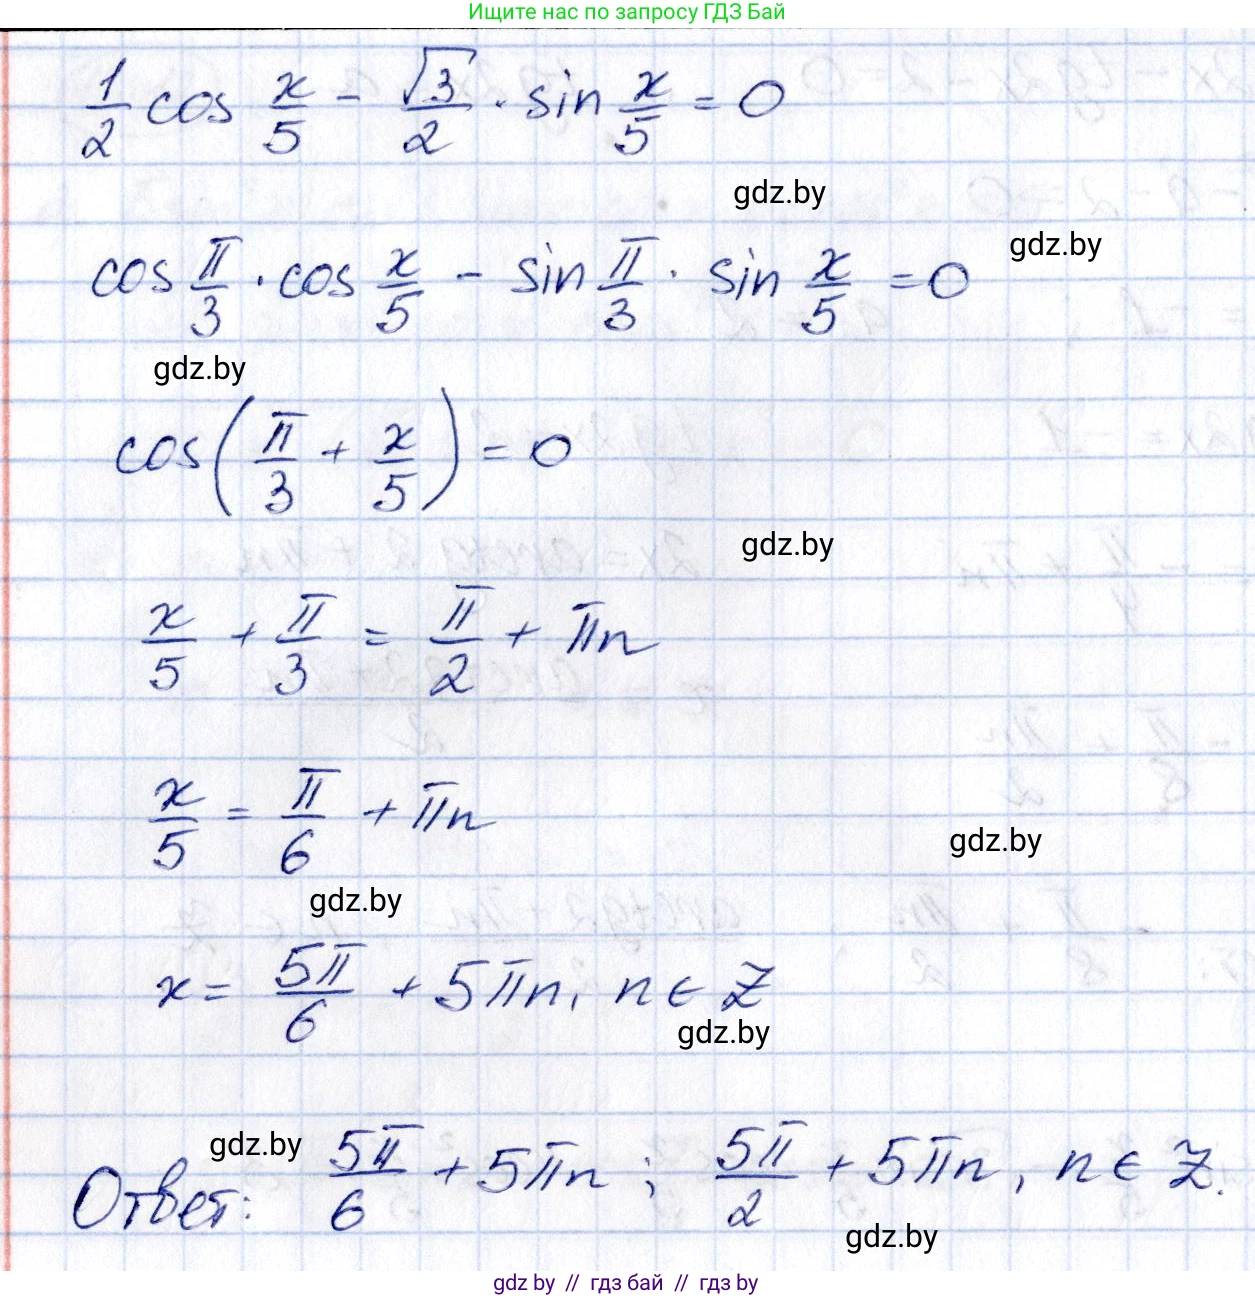 Ищите нас по запросу ГДЗ Бай
1/2 cos x/5 - √3/2 · sin x/5 = 0
gdz.by
cos π/3 · cos x/5 - sin π/3 · sin x/5 = 0
gdz.by
gdz.by
cos(π/3 + x/5) = 0
gdz.by
x/5 + π/3 = π/2 + πn
x/5 = π/6 + πn
gdz.by
gdz.by
x = 5π/6 + 5πn, n ∈ Z
gdz.by
gdz.by
Ответ: 5π/6 + 5πn; 5π/2 + 5πn, n ∈ Z.
gdz.by
gdz by // гдз бай // гдз by